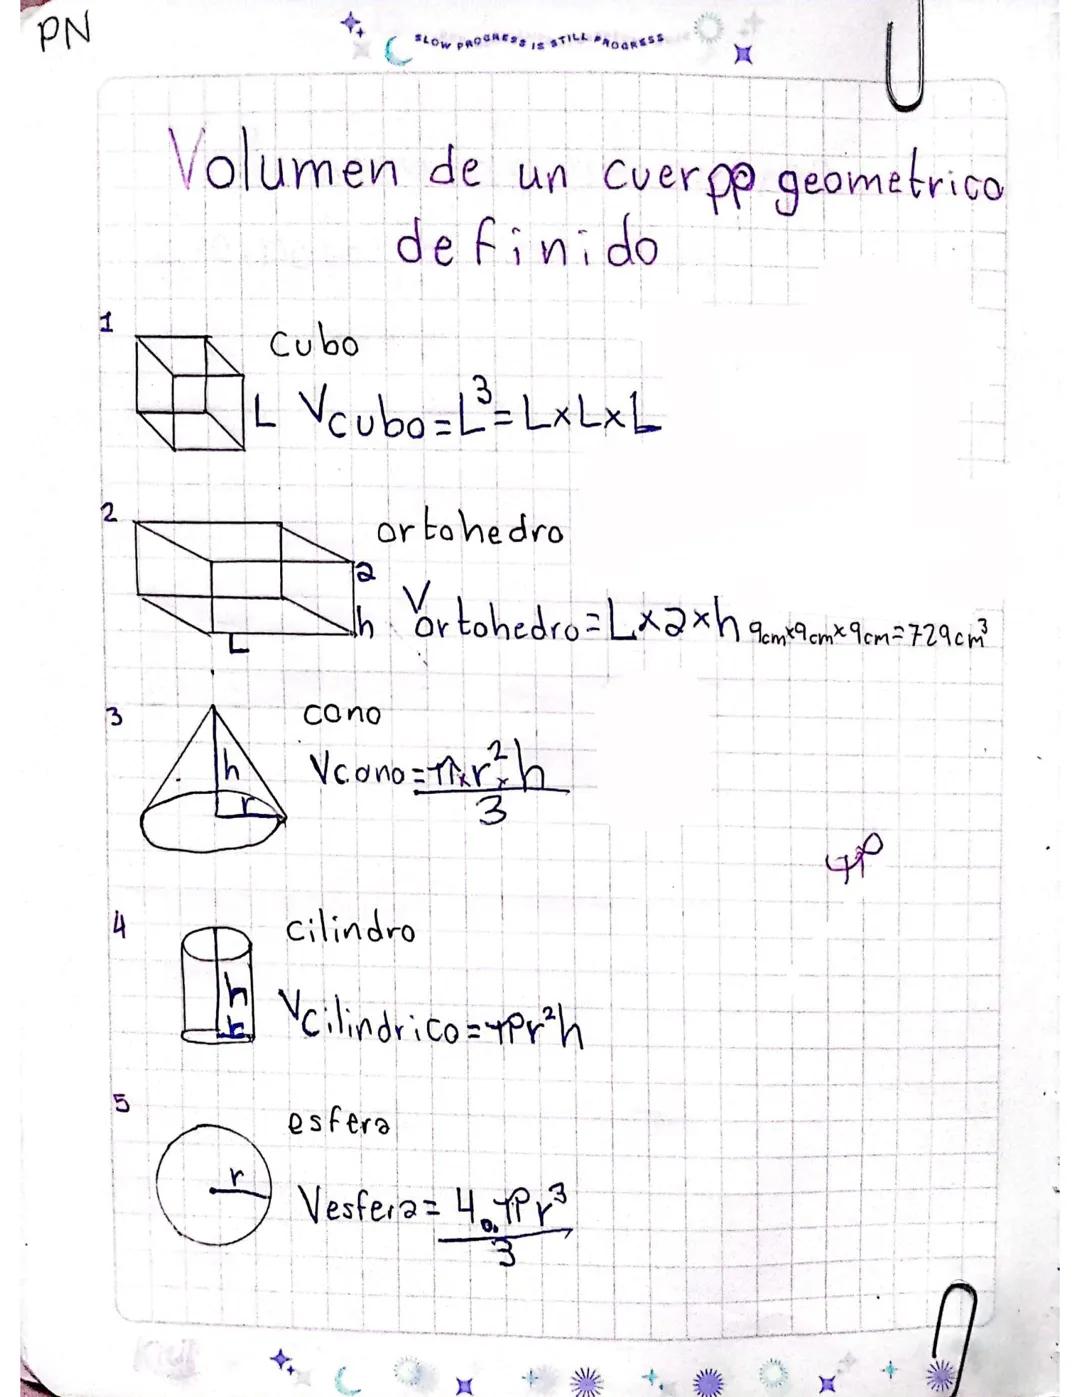 PN
SLOW PROGRESS IS STILL PROGRESS
Volumen de un cuerpo geometrico
definido
1
cubo
L Vcubo=L³=LxLxL
2
ortohedro
a
h Vortohedro=Lxaxh 9cmx9cmx9cm=729cm³
L
3
cono
h Vcono=πxr²xh
r
3
π
4
cilindro
h
r Vcilindrico=πr²h
5
esfera
r
Vesfera=4.πr³
3